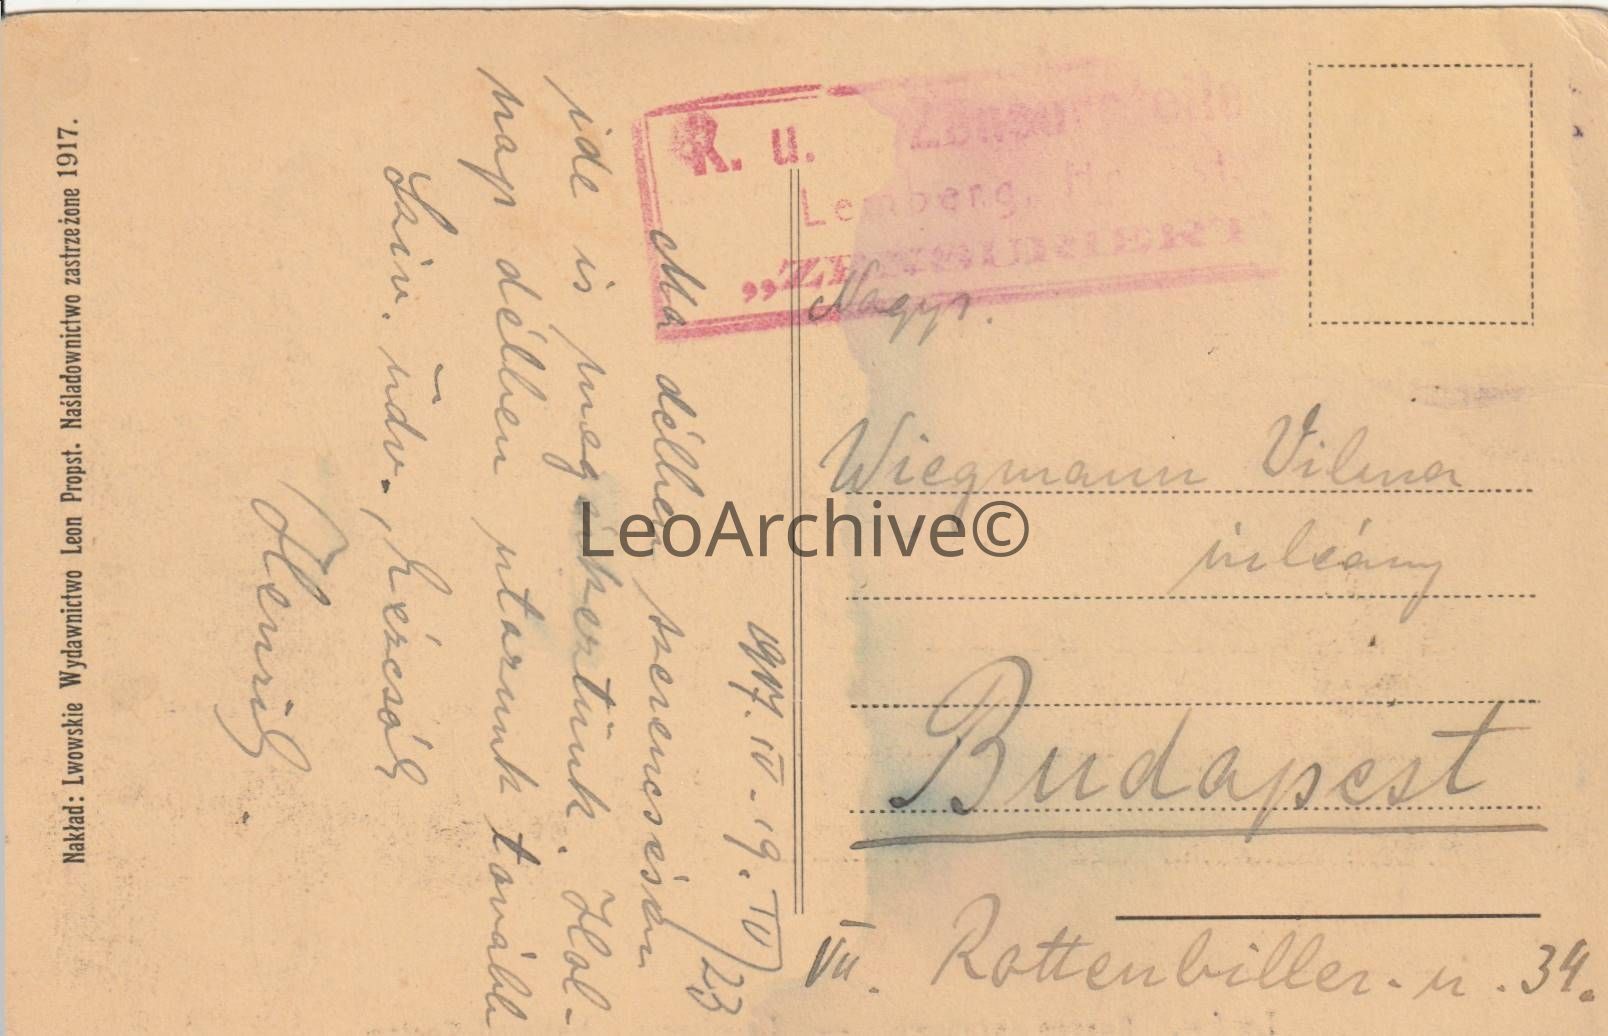 Nakład: Lwowskie Wydawnictwo Leon Propst. Naśladownictwo zastrzeżone 1917.
K. u.
Lemberg,
„ZENSURIERT"
1917. IV. 19. IV/23
Ma délben szerencsésen
ide is megérkeztünk. Hol-
nap délben utazunk tovább
Szív. üdv., kézcsók
Henrik
Nagys.
Wiegmann Vilma
úrleány
Budapest
VII. Rottenbiller. u. 34.
LeoArchive©